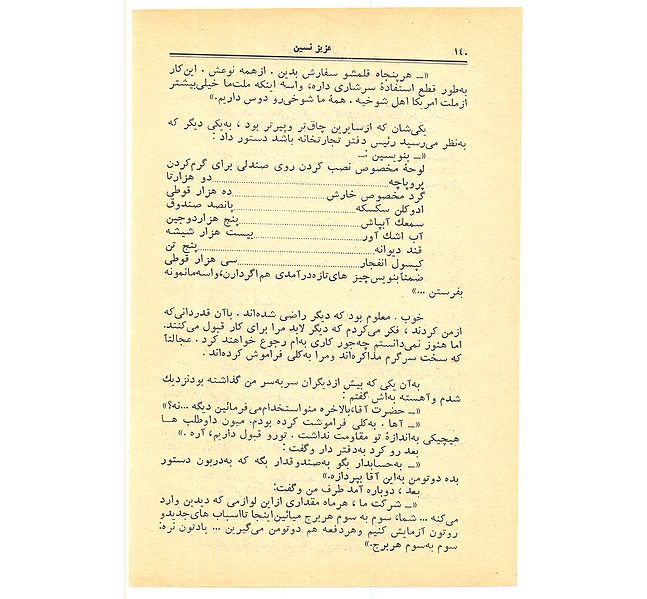 ۱٤۰
عزیز نسین
«ــ هر پنجاه قلمشو سفارش بدین . از همه نوعش . این کار
به‌طور قطع استفادهٔ سرشاری داره، واسه اینکه ملت‌ما خیلی‌بیشتر
از ملت امریکا اهل شوخیه . همهٔ ما شوخی‌رو دوس داریم.»
یکی‌شان که از سایرین چاق‌تر و پیرتر بود ، به‌یکی دیگر که
به‌نظر می‌رسید رئیس دفتر تجارتخانه باشد دستور داد :
«ــ بنویسین :ــ
لوحهٔ مخصوص نصب کردن روی صندلی برای گرم‌کردن
پروپاچه........................دو هزارتا
گرد مخصوص خارش........................ده هزار قوطی
ادوکلن سکسکه........................پانصد صندوق
سمعك آبپاش........................پنج هزاردوجین
آب اشك آور........................بیست هزار شیشه
قند دیوانه........................پنج تن
کپسول انفجار........................سی هزار قوطی
ضمناً بنویس‌چیز های‌تازه‌درآمدی هم‌اگردارن،واسه‌مانمونه
بفرستن ...»
خوب . معلوم بود که دیگر راضی شده‌اند . باآن قدردانی‌که
ازمن کردند ، فکر می‌کردم که دیگر لابد مرا برای کار قبول می‌کنند.
اما هنوز نمی‌دانستم چه‌جور کاری به‌ام رجوع خواهند کرد . عجالتاً
که سخت سرگرم مذاکره‌اند ومرا به‌کلی فراموش کرده‌اند .
به‌آن یکی که بیش ازدیگران سربه‌سر من گذاشته بودنزدیك
شدم وآهسته به‌اش گفتم :
«ــ حضرت آقا،بالاخره منواستخدام‌می‌فرمائین دیگه ...نه؟»
«ــ آها . به‌کلی فراموشت کرده بودم. میون داوطلب هـا
هیچیکی به‌اندازهٔ تو مقاومت نداشت . تورو قبول داریم، آره .»
بعد رو کرد به‌دفتر دار وگفت :
«ــ به‌حسابدار بگو به‌صندوقدار بگه که به‌دربون دستور
بده دوتومن به‌این آقا بپردازه.»
بعد ، دوباره آمد طرف من وگفت:
«ــ شرکت ما ، هرماه مقداری ازاین لوازمی که دیدین وارد
می‌کنه ... شما، سوم به سوم هربرج میائین‌اینجا تااسباب های‌جدیدو
روتون آزمایش کنیم وهردفعه هم دوتومن می‌گیرین ... یادتون نره:
سوم به‌سوم هربرج.»